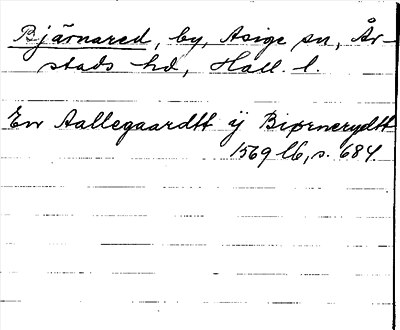 Bjärnared, by, Asige sn, År-
stads hd, Hall. l.
En Aallegaardtt ÿ Biørnerydtt
1569 lb, s. 684.